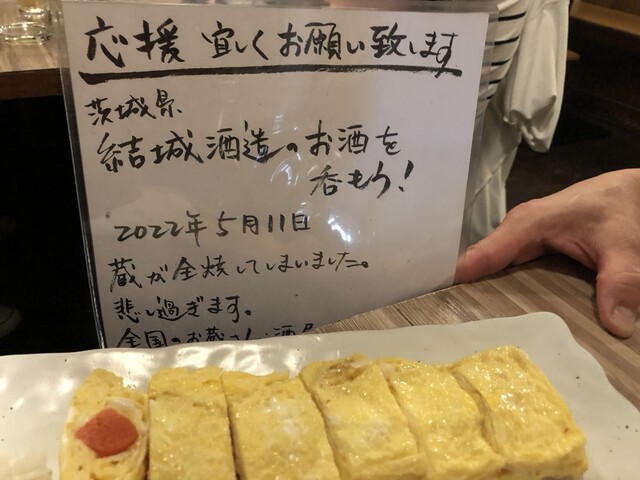 応援 宜しくお願い致します
茨城県
結城酒造のお酒を
呑もう!
2022年5月11日
蔵が全焼してしまいました。
悲し過ぎます。
全国のお蔵さん、酒屋